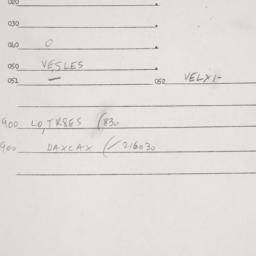 020
030
040 0
050 VE,SLES
051 — 052 VELX1-
900 LO,TR8ES (830
900 DAXCAX (✓216030